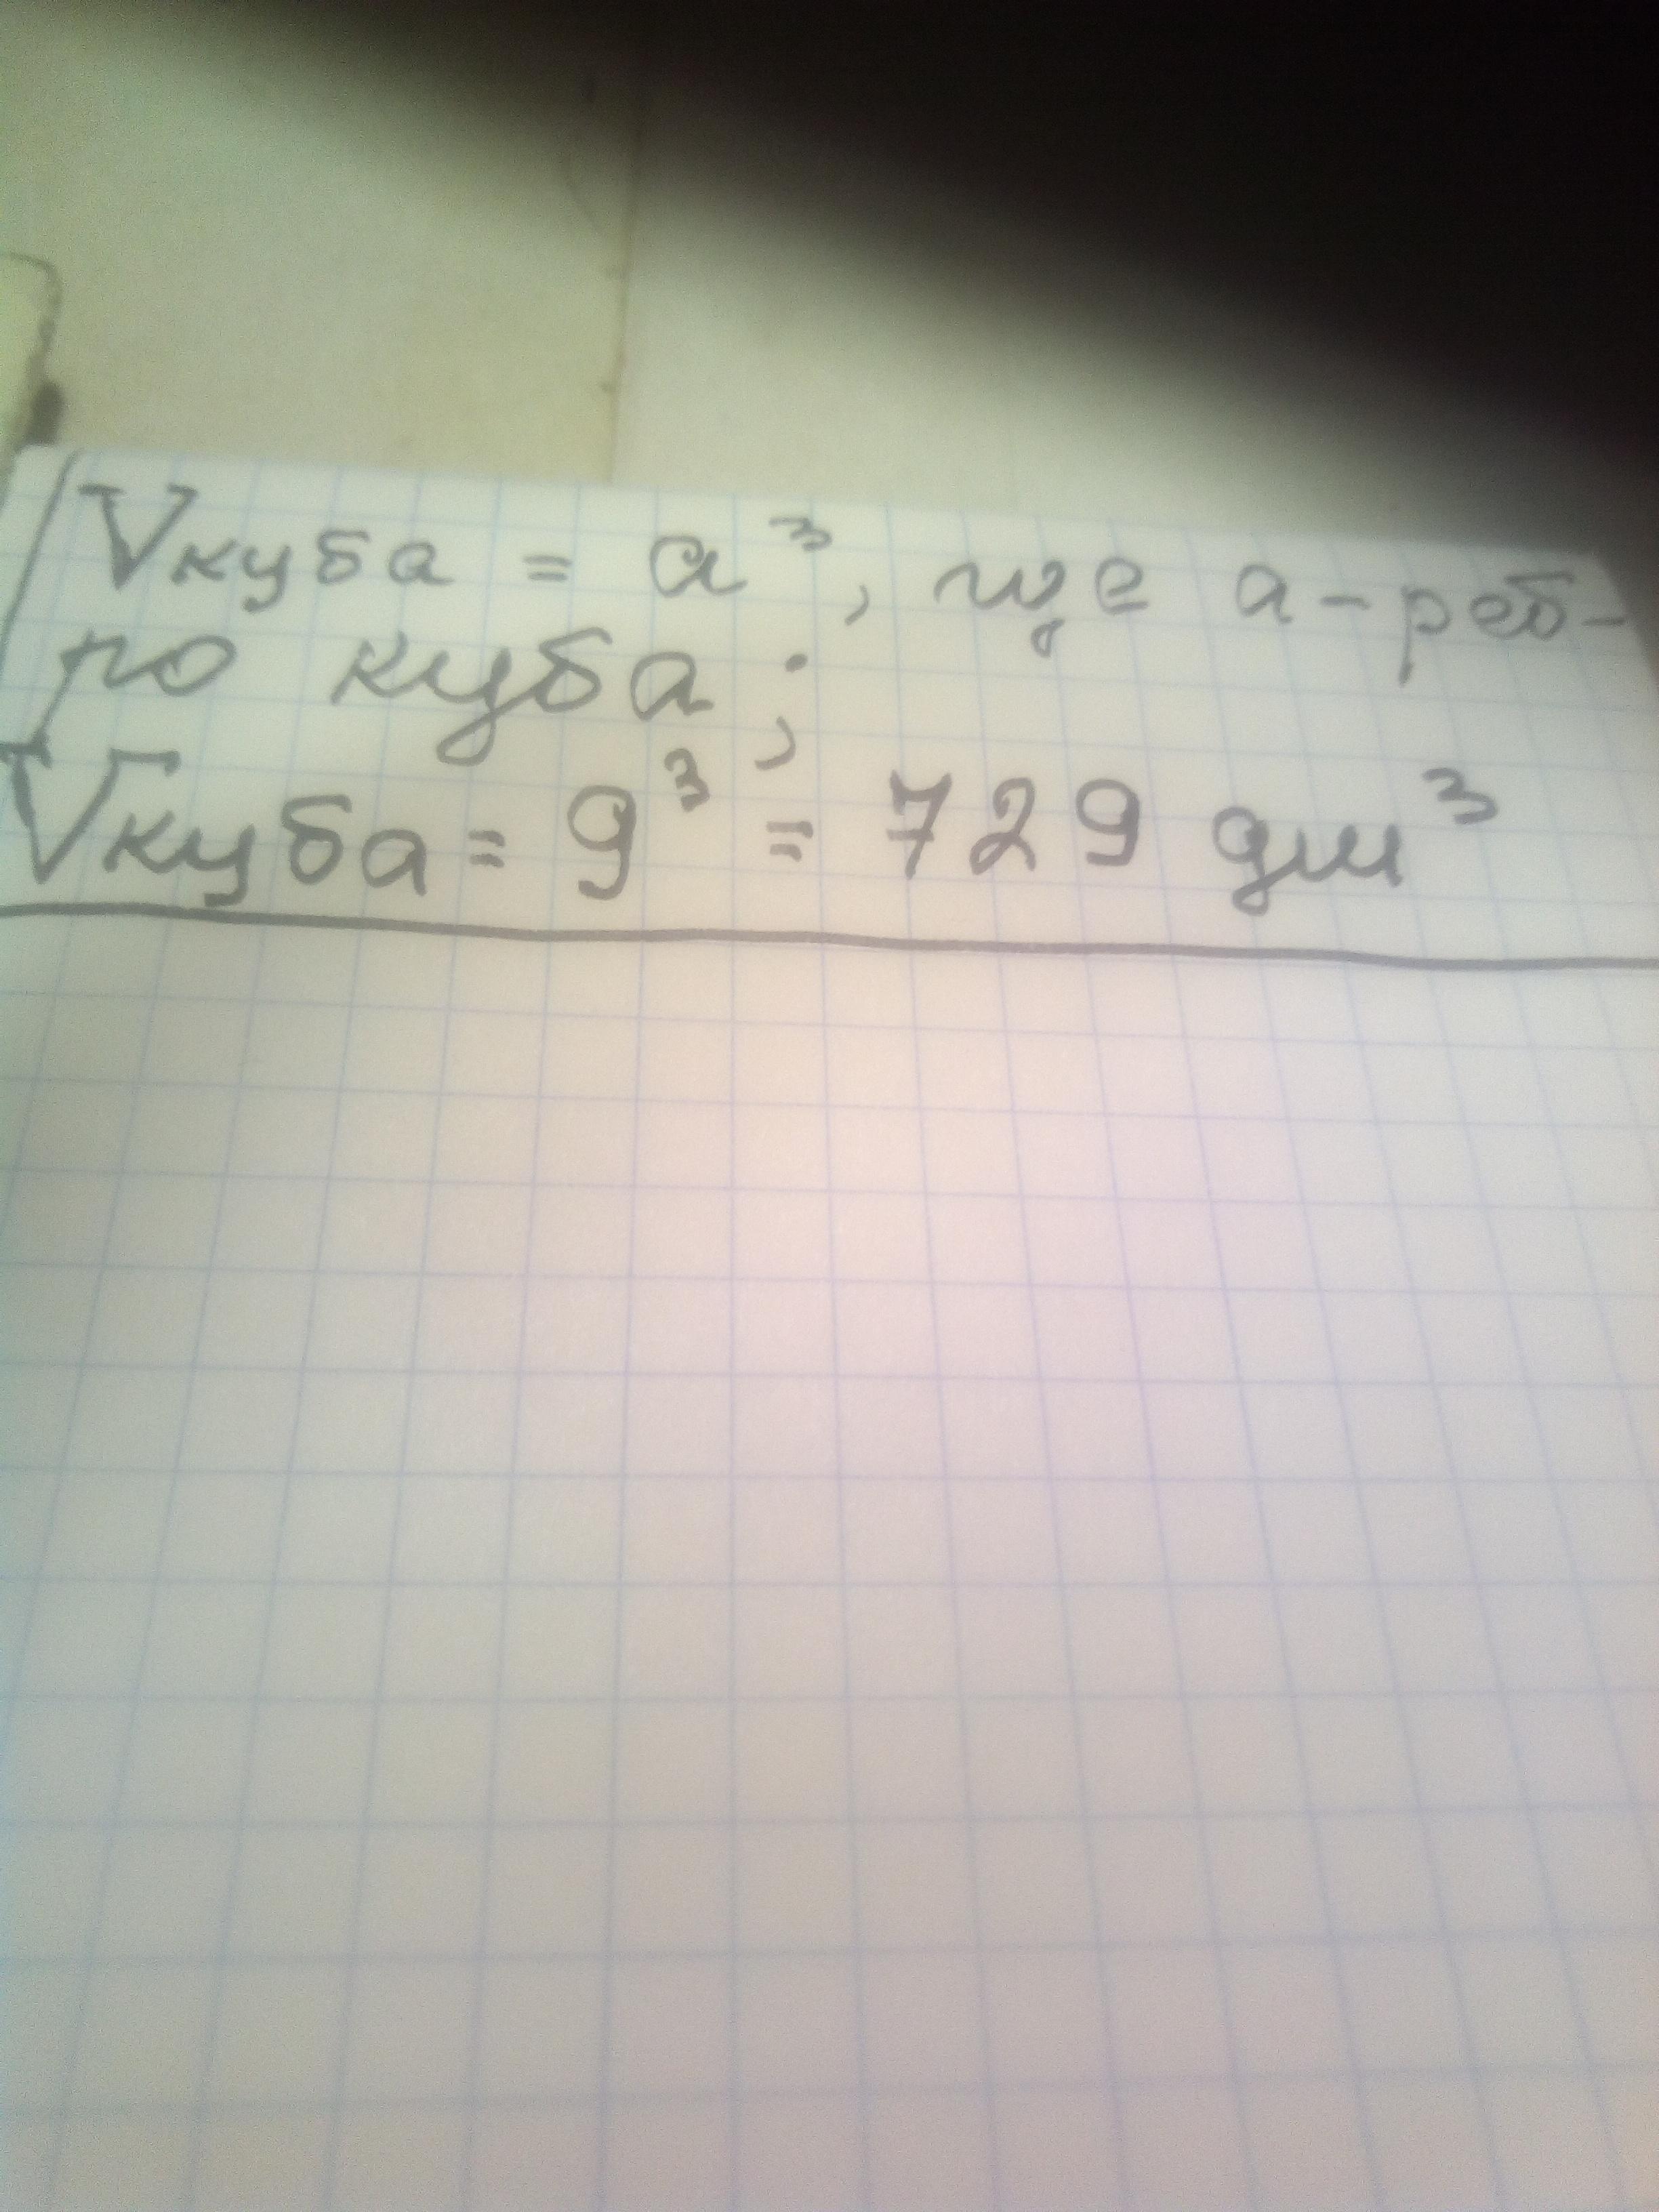 Vкуба = a³, где a - реб-
ро куба;
Vкуба = 9³ = 729 дм³